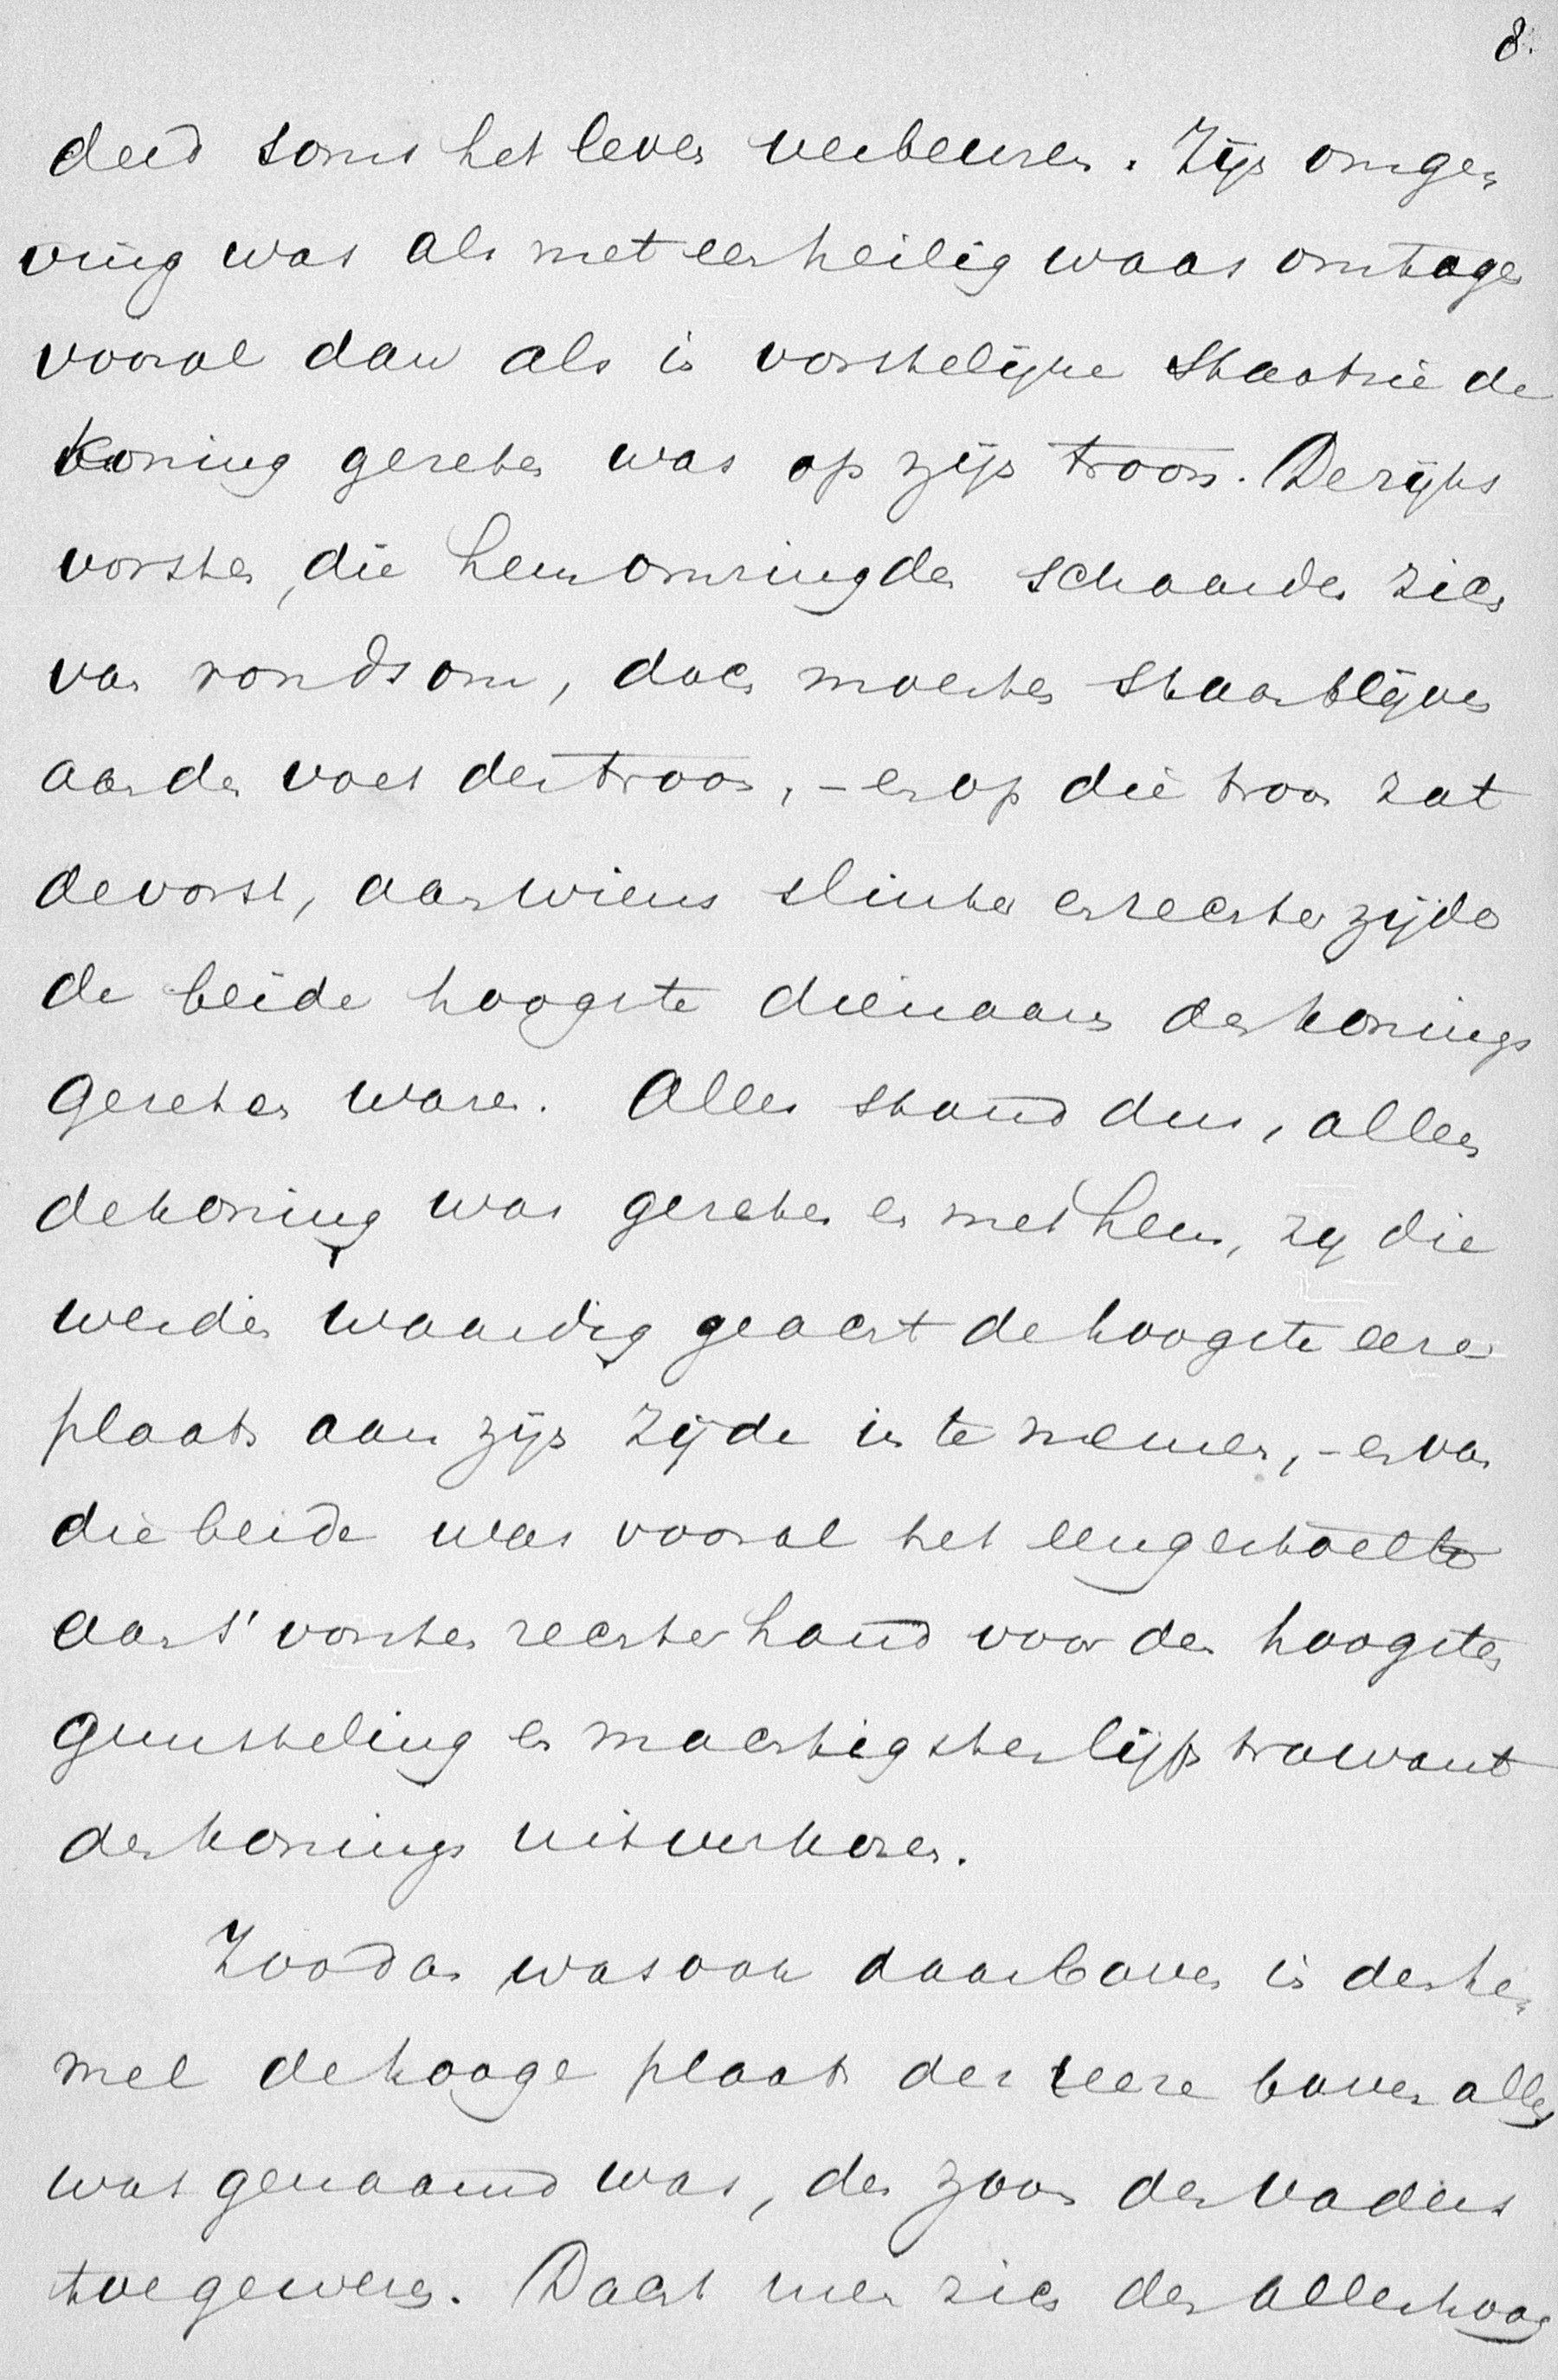 8.
deed soms het leven verbeuren. Zijn omge-
ving was als met een heilig waas omtogen
vooral dan als in vorstelijke staatsie de
Koning gezeten was op zijn troon. De rijks
vorsten, die hem omringden schaarden zich
van rondsom, doch moesten staan blijven
aan den voet des troons, - en op die troon zat
de vorst, aan wiens slinker en rechterzijde
de beide hoogste dienaars des konings
gezeten waren. Alles stond dus, alleen
de koning was gezeten en met hem, zij die
werden waardig geacht de hoogste eere
plaats aan zijn zijde in te nemen, - en van
die beide was vooral het eengestoelte
aan s' vorsten rechterhand voor den hoogsten
gunsteling en machtigsten lijftrawant
des konings uitverkoren.
Zoo dan was ook daarboven in den he-
mel de hooge plaats der eere boven alles
wat genaamd was, den zoon des vaders
toegewezen. Dacht men zich den allerhoog